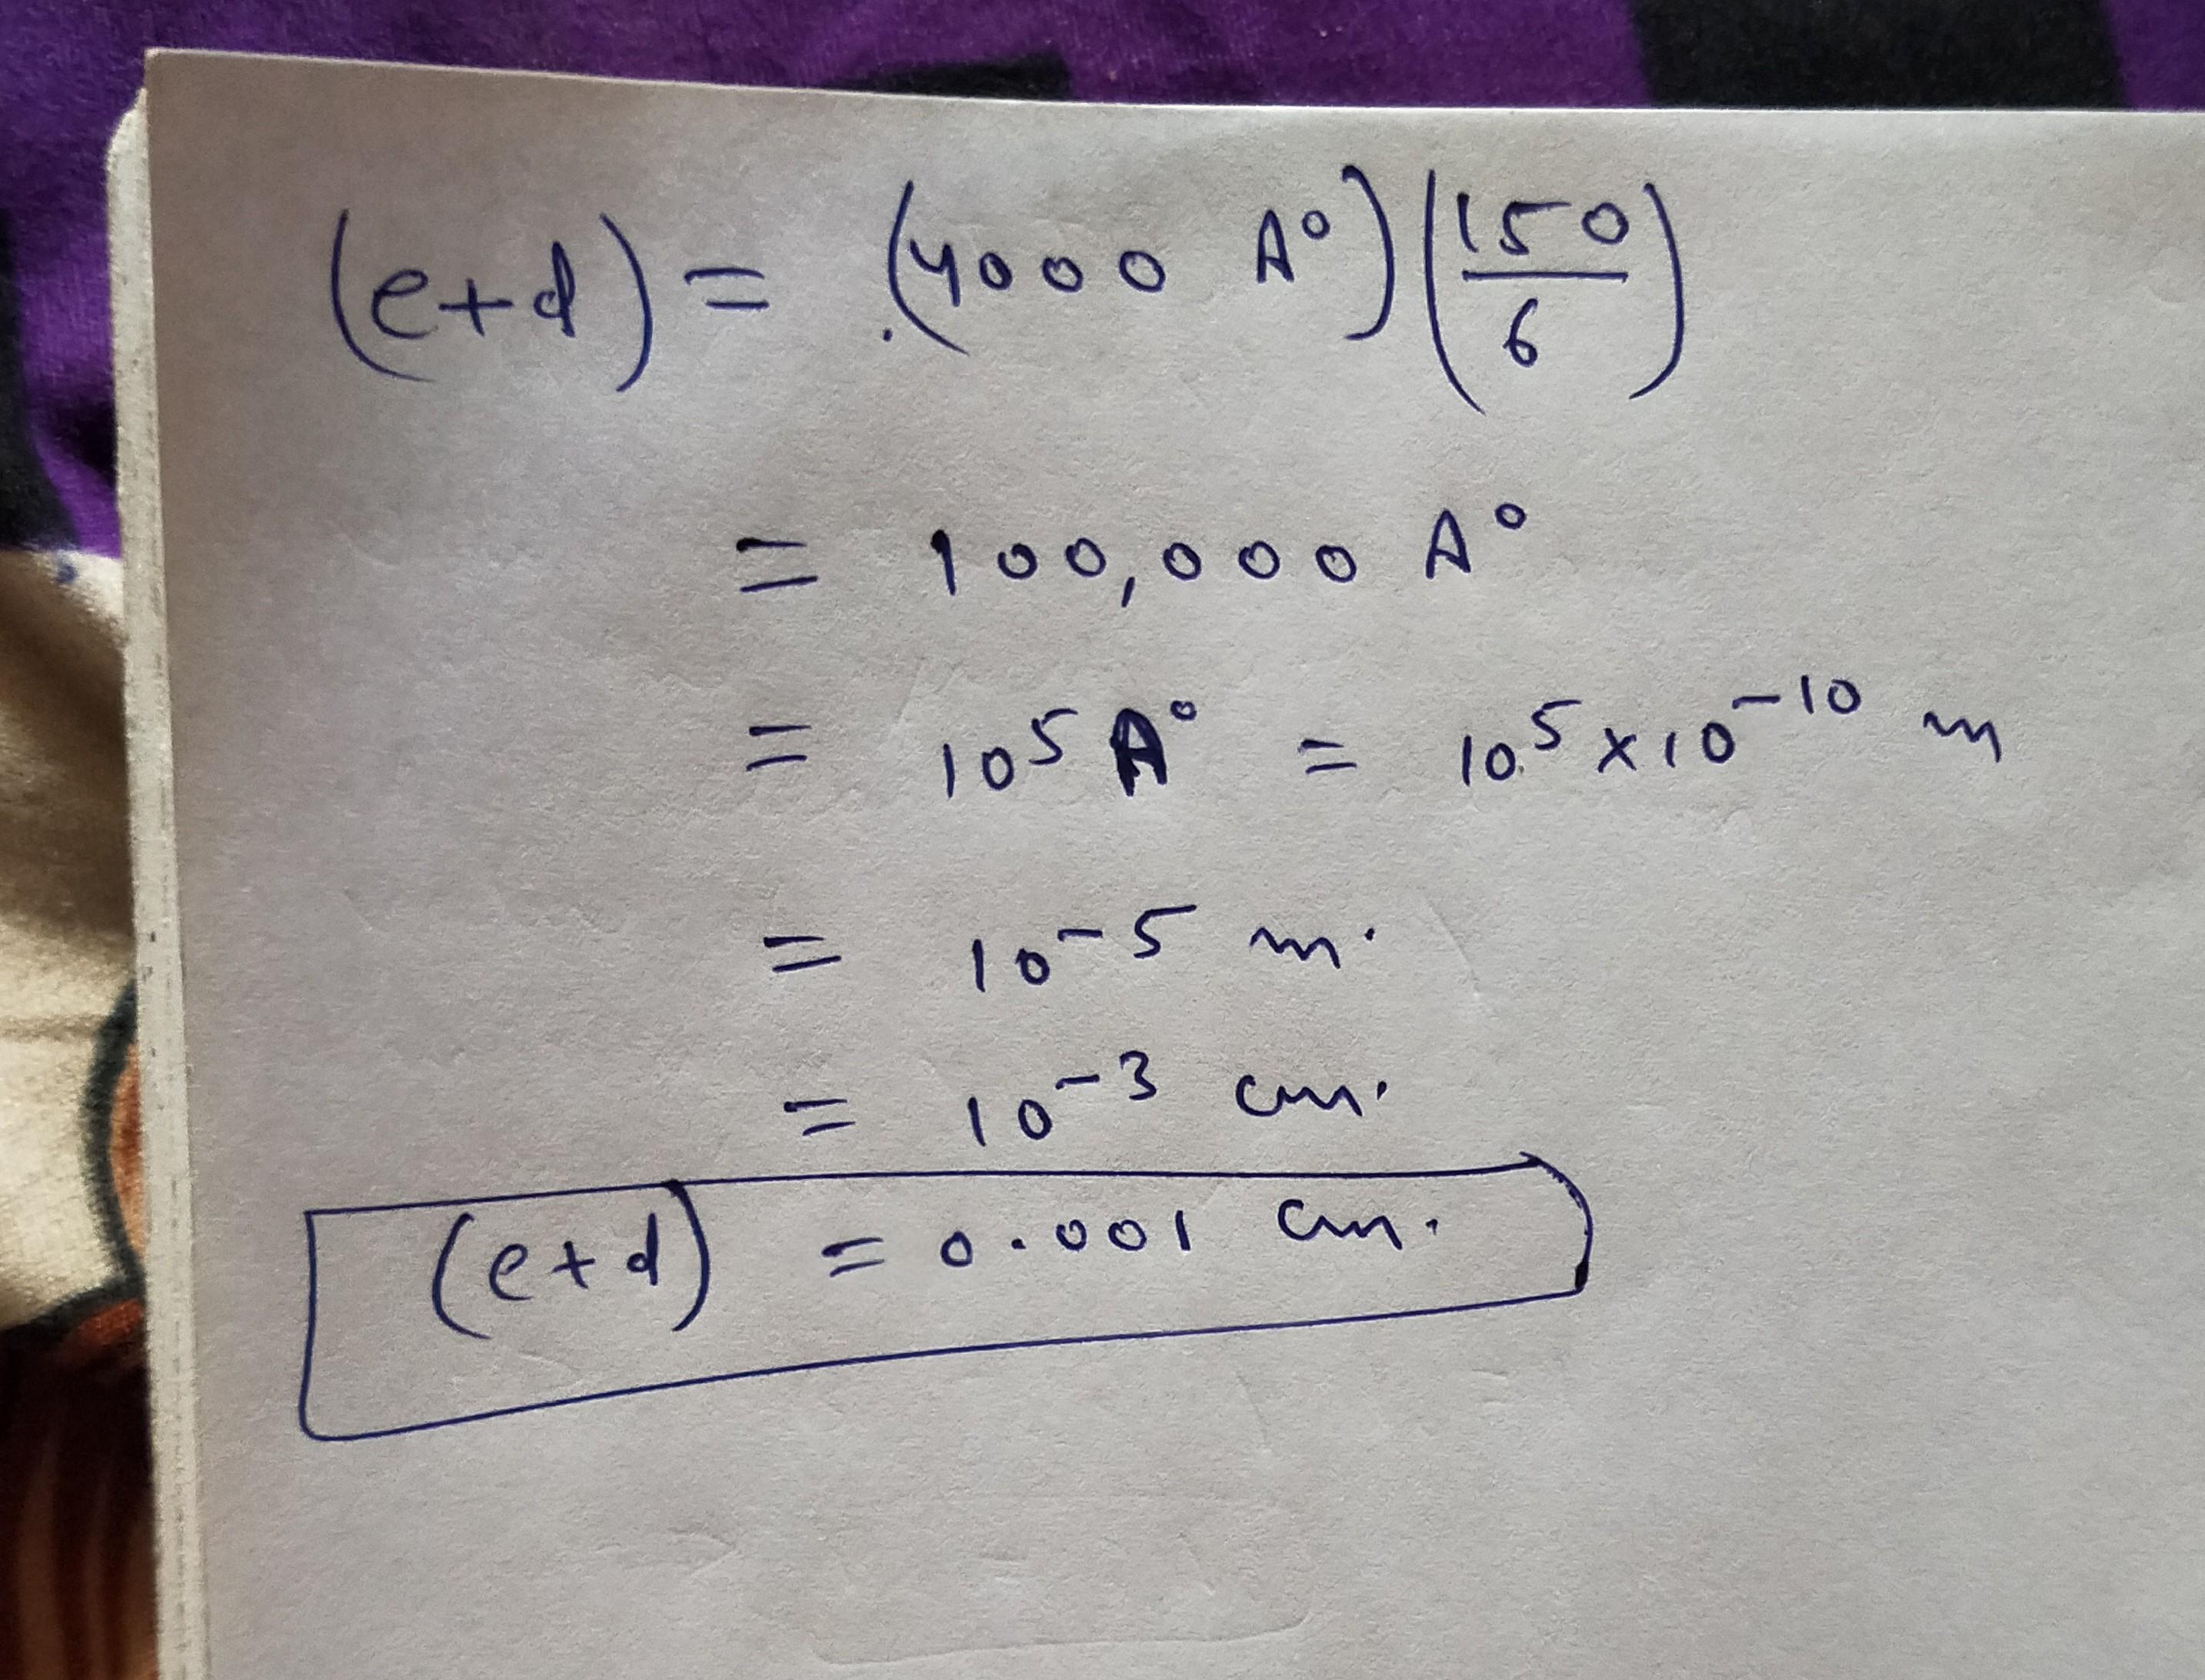 (e+d) = (4000 A°)(150/6)
= 100,000 A°
= 10⁵ A° = 10⁵ × 10⁻¹⁰ m
= 10⁻⁵ m.
= 10⁻³ cm.
(e+d) = 0.001 cm.